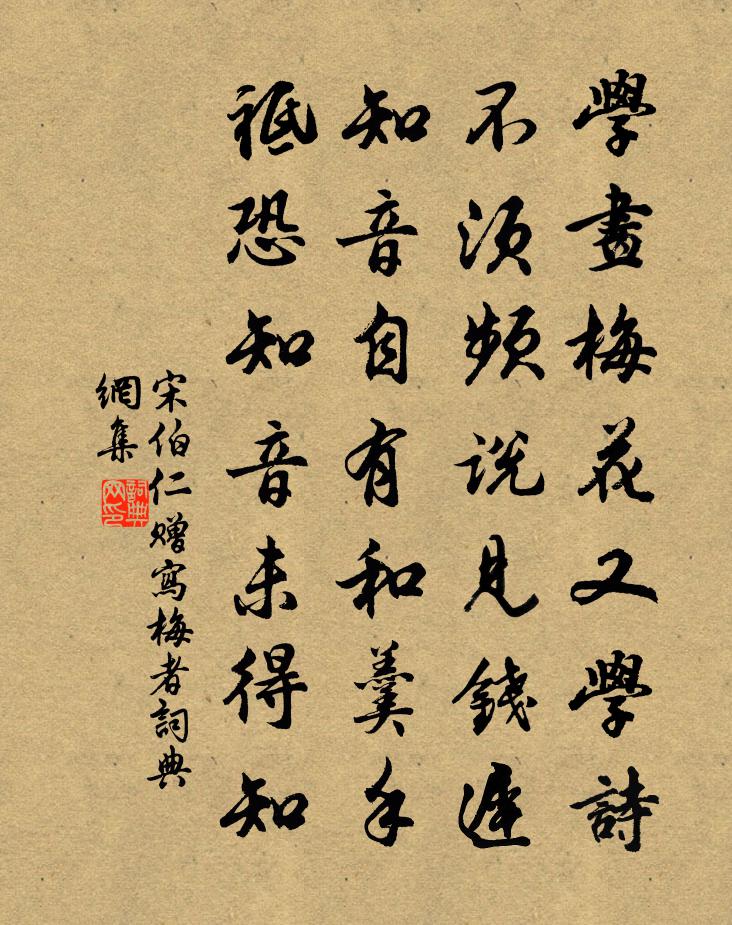 學畫梅花又學詩
不須頻說見錢遲
知音自有和羹手
祗恐知音未得知
宋伯仁贈寫梅者詞典
網集
詞典
网印